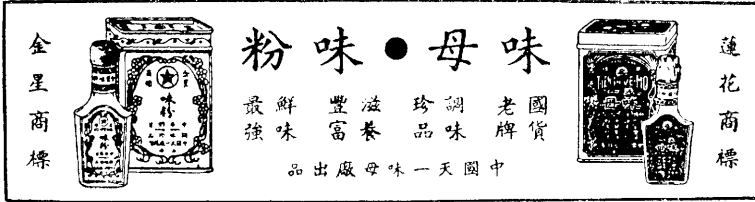 蓮花商標
味母●味粉
國貨
老牌
調味
珍品
滋養
豐富
鮮味
最強
中國天一味母廠出品
金星商標
味粉